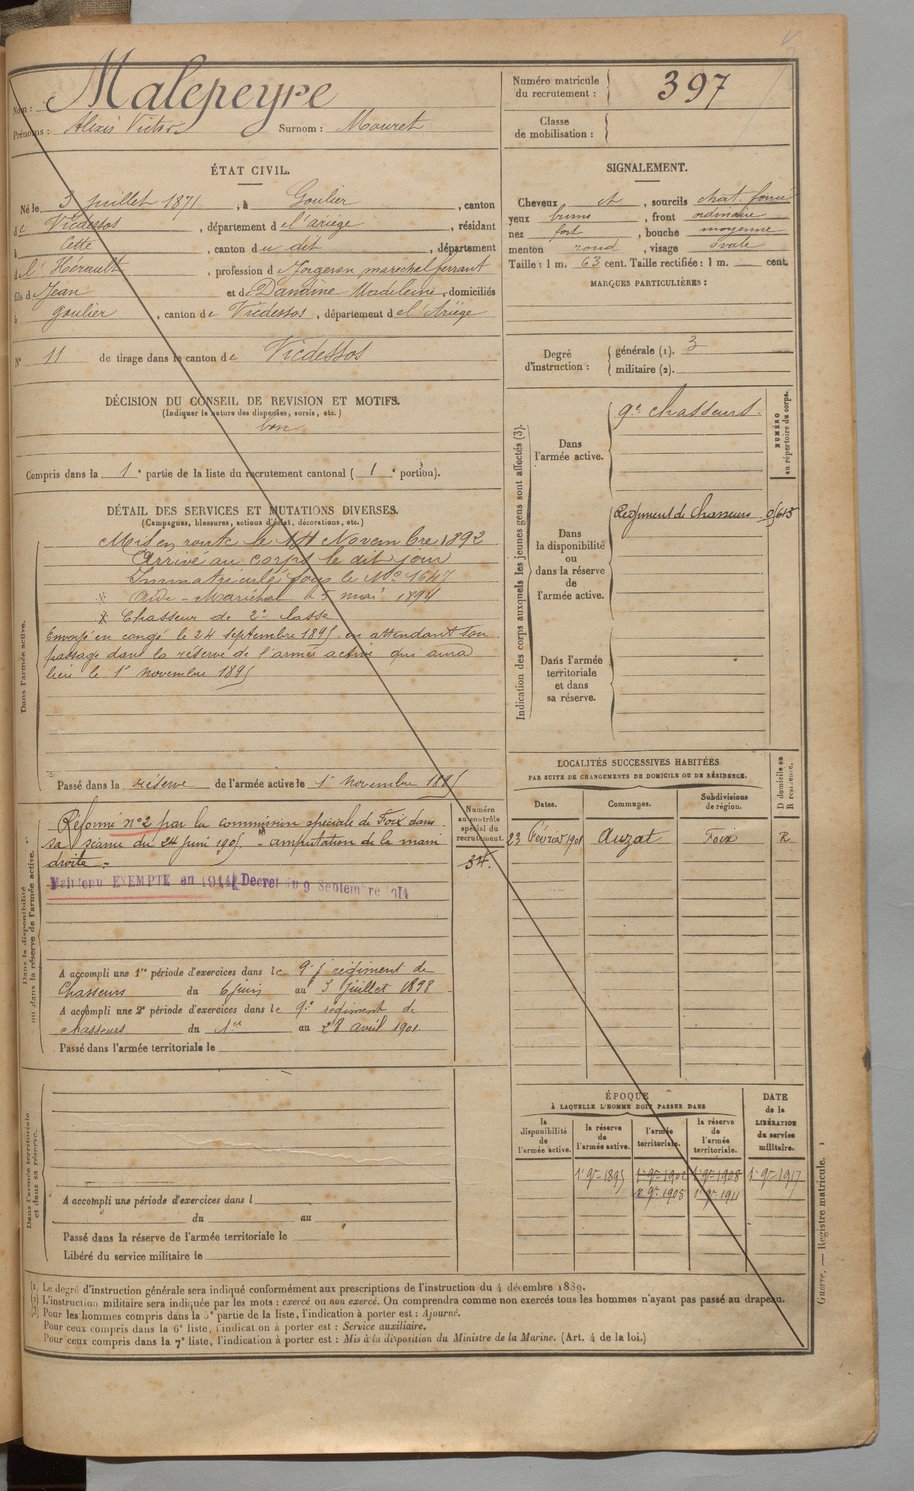 Nom : Malepeyre
Prénoms : Alexis Victor Surnom : Mouret
Numéro matricule du recrutement : 397
Classe de mobilisation :
ÉTAT CIVIL.
Né le 3 juillet 1871, à Goulier, canton
de Vicdessos, département de l'ariège, résidant
à Cette, canton du dit, département
de l'Hérault, profession de forgeron maréchal ferrant
fils de Jean et de Dandine Madeleine, domiciliés
à Goulier, canton de Vicdessos, département de l'Ariège
N° 11 de tirage dans le canton de Vicdessos
SIGNALEMENT.
Cheveux et, sourcils chat. foncé
yeux bruns, front ordinaire
nez fort, bouche moyenne
menton rond, visage ovale
Taille : 1 m. 63 cent. Taille rectifiée : 1 m. cent.
MARQUES PARTICULIÈRES :
Degré d'instruction :
générale (1). 3
militaire (2).
DÉCISION DU CONSEIL DE REVISION ET MOTIFS.
(Indiquer la nature des dispenses, sursis, etc.)
bon
Compris dans la 1e partie de la liste du recrutement cantonal ( 1e portion).
DÉTAIL DES SERVICES ET MUTATIONS DIVERSES.
(Campagnes, blessures, actions d'éclat, décorations, etc.)
Dans l'armée active.
Mis en route le 14 Novembre 1892
Arrivé au corps le dit jour
Immatriculé sous le N° 1647
Aide-Maréchal le 5 mai 1894
Chasseur de 2e classe
Envoyé en congé le 24 septembre 1895 en attendant son
passage dans la réserve de l'armée active qui aura
lieu le 1er novembre 1895
Passé dans la réserve de l'armée active le 1er novembre 1895
Indication des corps auxquels les jeunes gens sont affectés (3).
NUMÉRO au répertoire du corps.
Dans l'armée active.
9e chasseurs
Dans la disponibilité ou dans la réserve de l'armée active.
Régiment de Chasseurs 0/613
Dans l'armée territoriale et dans sa réserve.
Dans la disponibilité ou dans la réserve de l'armée active.
Numéro au contrôle spécial du recrutement.
34.
Réformé n°2 par la commission spéciale de Foix dans
sa séance du 24 juin 1905. amputation de la main
droite.
Maintenu EXEMPTE en 1914 Decret du 9 Septembre 1914
A accompli une 1re période d'exercices dans le 9e régiment de
Chasseurs du 6 juin au 3 Juillet 1898
A accompli une 2e période d'exercices dans le 9e régiment de
chasseurs du 1er au 28 avril 1901.
Passé dans l'armée territoriale le
LOCALITÉS SUCCESSIVES HABITÉES
PAR SUITE DE CHANGEMENTS DE DOMICILE OU DE RÉSIDENCE.
Dates. Communes. Subdivisions de région. D domicile ou R résidence.
23 Février 1901 Auzat Foix R
Dans l'armée territoriale et dans sa réserve.
A accompli une période d'exercices dans l
du au
Passé dans la réserve de l'armée territoriale le
Libéré du service militaire le
ÉPOQUE
À LAQUELLE L'HOMME DOIT PASSER DANS
DATE de la LIBÉRATION du service militaire.
la disponibilité de l'armée active. la réserve de l'armée active. l'armée territoriale. la réserve de l'armée territoriale.
1er 9bre 1895 1er 9bre 1902 1er 9bre 1908 1er 9bre 1917
1er 9bre 1911
(1) Le degré d'instruction générale sera indiqué conformément aux prescriptions de l'instruction du 4 décembre 1889.
(2) L'instruction militaire sera indiquée par les mots : exercé ou non exercé. On comprendra comme non exercés tous les hommes n'ayant pas passé au drapeau.
(3) Pour les hommes compris dans la 5e partie de la liste, l'indication à porter est : Ajourné.
Pour ceux compris dans la 6e liste, l'indication à porter est : Service auxiliaire.
Pour ceux compris dans la 7e liste, l'indication à porter est : Mis à la disposition du Ministre de la Marine. (Art. 4 de la loi.)
Guerre. — Registre matricule.